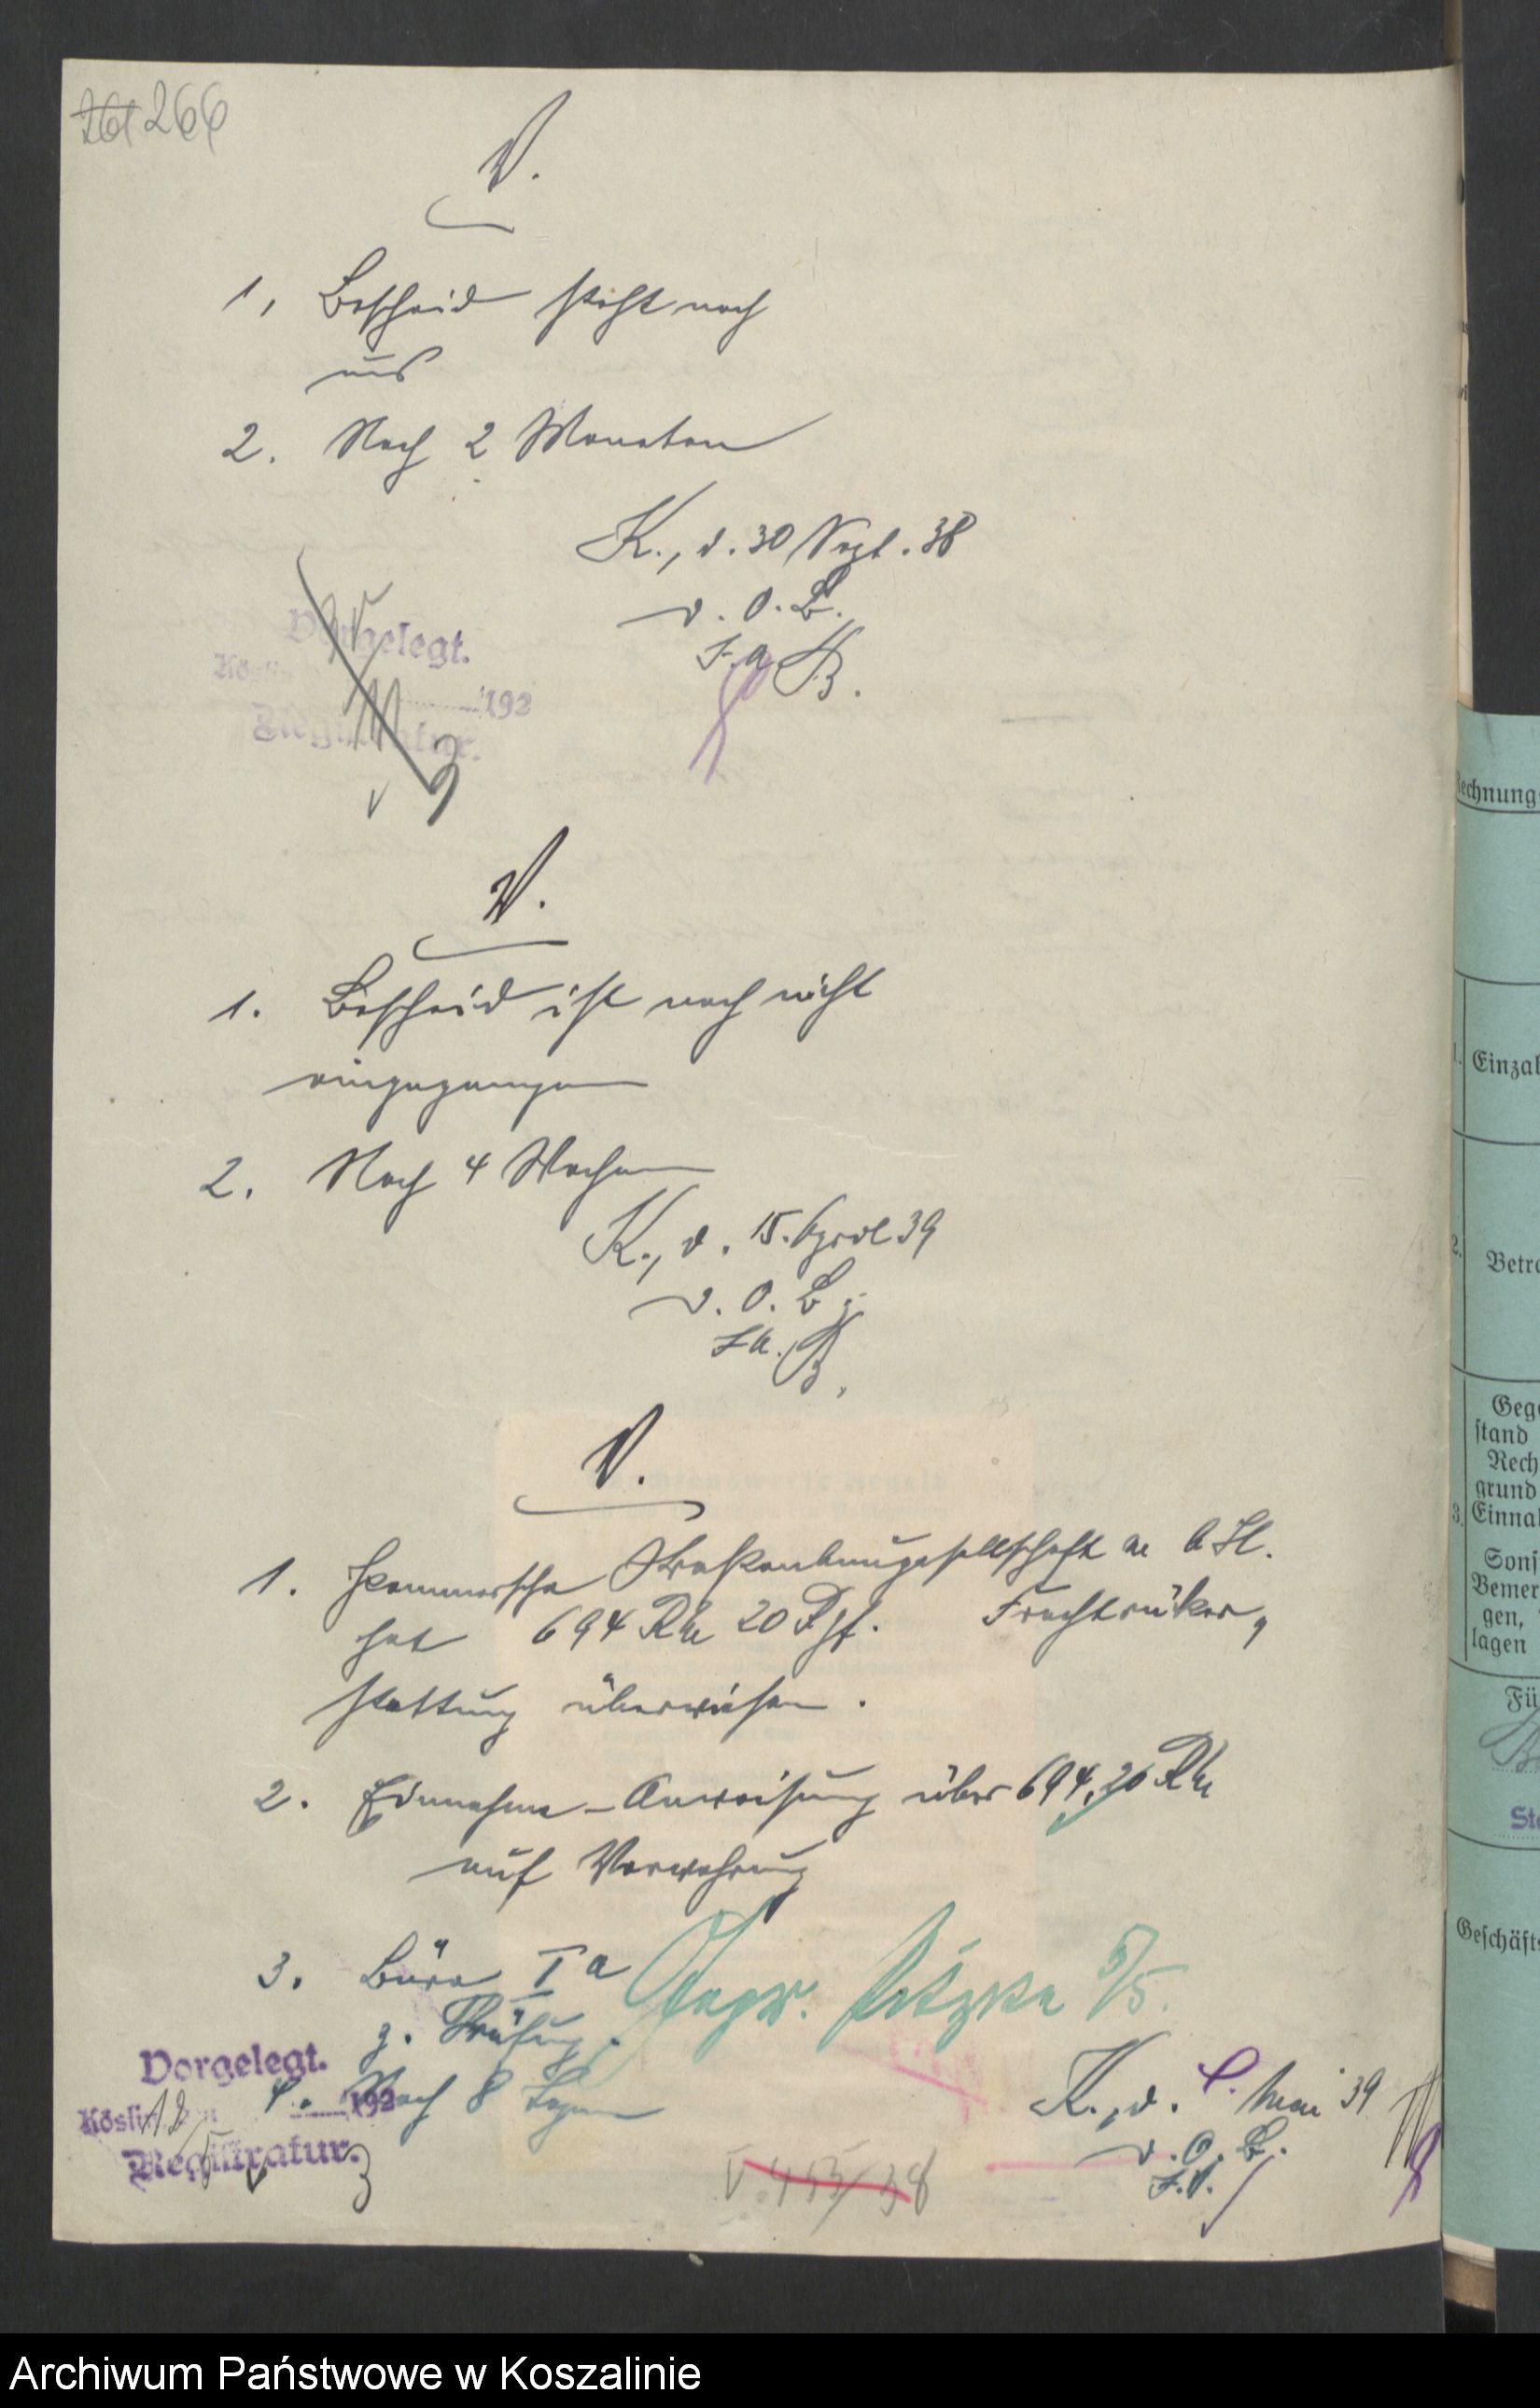 261 266
V.
1, Bescheid steht noch
aus
2. Nach 2 Monaten
K., d. 30 Sept. 38
d. O. B.
Vorgelegt.
Köslin
192
Registratur.
V.
1. Bescheid ist noch nicht
eingegangen
2. Nach 4 Wochen
K., d. 15. April 39
d. O. B.
V.
1. Pommersche Straßenbaugesellschaft
hat 694 RM 20 Rpf. Frachtrücker,
stattung überwiesen.
2. Einnahme-Anweisung über 694,20 RM
auf Verwahrung
3. Büro Ia
z. Prüfung.
4. Nach 8 Tagen
Vorgelegt.
Köslin
192
Registratur.
K., d. Mai 39
d. O. B.
V 453/38
Rechnung
1. Einzal
2. Betra
Gege
stand
Rech
grund
3. Einnah
Sons
Bemer
gen,
lagen
Fü
Ste
Geschäfts
Archiwum Państwowe w Koszalinie